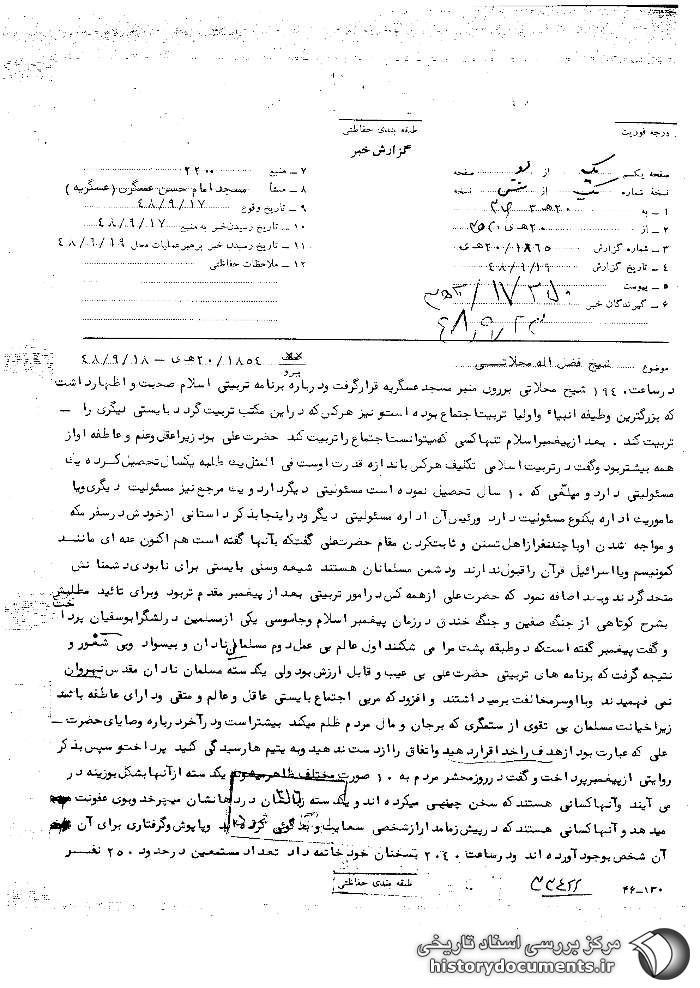 درجه فوریت
طبقه بندی حفاظتی
گزارش خبر
صفحه یکم از دو صفحه
نسخه شماره یک از شش نسخه
۱ ـ به ۲۰هـ ۳
۲ ـ از ۲۰هـ
۳ ـ شماره گزارش ۲۰/۱۸۶۵هـ
۴ ـ تاریخ گزارش ۴۸/۹/۱۹
۵ ـ پیوست
۶ ـ گیرندگان خبر
۷ ـ منبع ۲۲۰۰
۸ ـ منشأ مسجد امام حسن عسگری (عسگریه)
۹ ـ تاریخ وقوع ۴۸/۹/۱۷
۱۰ ـ تاریخ رسیدن خبر به منبع ۴۸/۹/۱۷
۱۱ ـ تاریخ رسیدن خبر برهبر عملیات محل ۴۸/۹/۱۹
۱۲ ـ ملاحظات حفاظتی
موضوع شیخ فضل اله محلاتی پیرو ۲۰/۱۸۵۴هـ ـ ۴۸/۹/۱۸
در ساعت ۱۹۴۰ شیخ محلاتی برروی منبر مسجد عسگریه قرار گرفت و درباره برنامه تربیتی اسلام صحبت و اظهار داشت
که بزرگترین وظیفه انبیاء و اولیا تربیت اجتماع بوده است و نیز هرکس که در این مکتب تربیت گردد بایستی دیگری را ـ
تربیت کند . بعد از پیغمبر اسلام تنها کسی که میتوانست اجتماع را تربیت کند حضرت علی بود زیرا عقل و علم و عاطفه او از
همه بیشتر بود و گفت در تربیت اسلامی تکلیف هرکس باندازه قدرت اوست فی المثل یک طلبه یکسال تحصیل کرده یک
مسئولیتی دارد و مبلغی که ۱۰ سال تحصیل نموده است مسئولیتی دیگر دارد و یک مرجع نیز مسئولیت دیگری و یا
مامور یک اداره یکنوع مسئولیت دارد و رئیس آن اداره مسئولیتی دیگر و در اینجا بذکر داستانی از خودش در سفر مکه
و مواجه شدن او با چند نفر از اهل تسنن و ثابت کردن مقام حضرت علی گفت که بآنها گفته است هم اکنون عده ای مانند
کمونیسم و یا اسرائیل قرآن را قبول ندارند و دشمن مسلمانان هستند شیعه و سنی بایستی برای نابودی دشمنانش
متحد گردند و بعد اضافه نمود که حضرت علی از همه کس در امور تربیتی بعد از پیغمبر مقدم تر بود و برای تائید مطلبش
بشرح کوتاهی از جنگ صفین و جنگ خندق در زمان پیغمبر اسلام و جاسوسی یکی از مسلمین در لشگر ابوسفیان پرداخت
و گفت پیغمبر گفته است که دو طبقه پشت مرا می شکنند اول عالم بی عمل دوم مسلمان نادان و بیسواد و بی شعور و
نتیجه گرفت که برنامه های تربیتی حضرت علی بی عیب و قابل ارزش بود ولی یکدسته مسلمان نادان مقدس نهروان
نمی فهمیدند و با او سر مخالفت برمیداشتند و افزود که مربی اجتماع بایستی عاقل و عالم و متقی و دارای عاطفه باشد
زیرا خیانت مسلمان بی تقوی از ستمگری که برجان و مال مردم ظلم میکند بیشتر است و در آخر درباره وصایای حضرت ـ
علی که عبارت بود از هدف را خدا قرار دهید و اتفاق را از دست ندهید و به یتیم ها رسیدگی کنید پرداخت و سپس بذکر
روایتی از پیغمبر پرداخت و گفت در روز محشر مردم به ۱۰ صورت مختلف ظاهر میشوند یکدسته از آنها بشکل بوزینه در
می آیند و آنها کسانی هستند که سخن چینی میکرده اند و یکدسته زبانشان در دهانشان میچرخد و بوی عفونت
میدهد و آنها کسانی هستند که در پیش زمامدار از شخصی سعایت و بدگوئی و پاپوش و گرفتاری برای آن
آن شخص بوجود آورده اند و در ساعت ۲۰۴۰ بسخنان خود خاتمه داد تعداد مستمعین در حدود ۲۵۰ نفر
طبقه بندی حفاظتی
۱۳۰ـ۴۶
مرکز بررسی اسناد تاریخی
historydocuments.ir